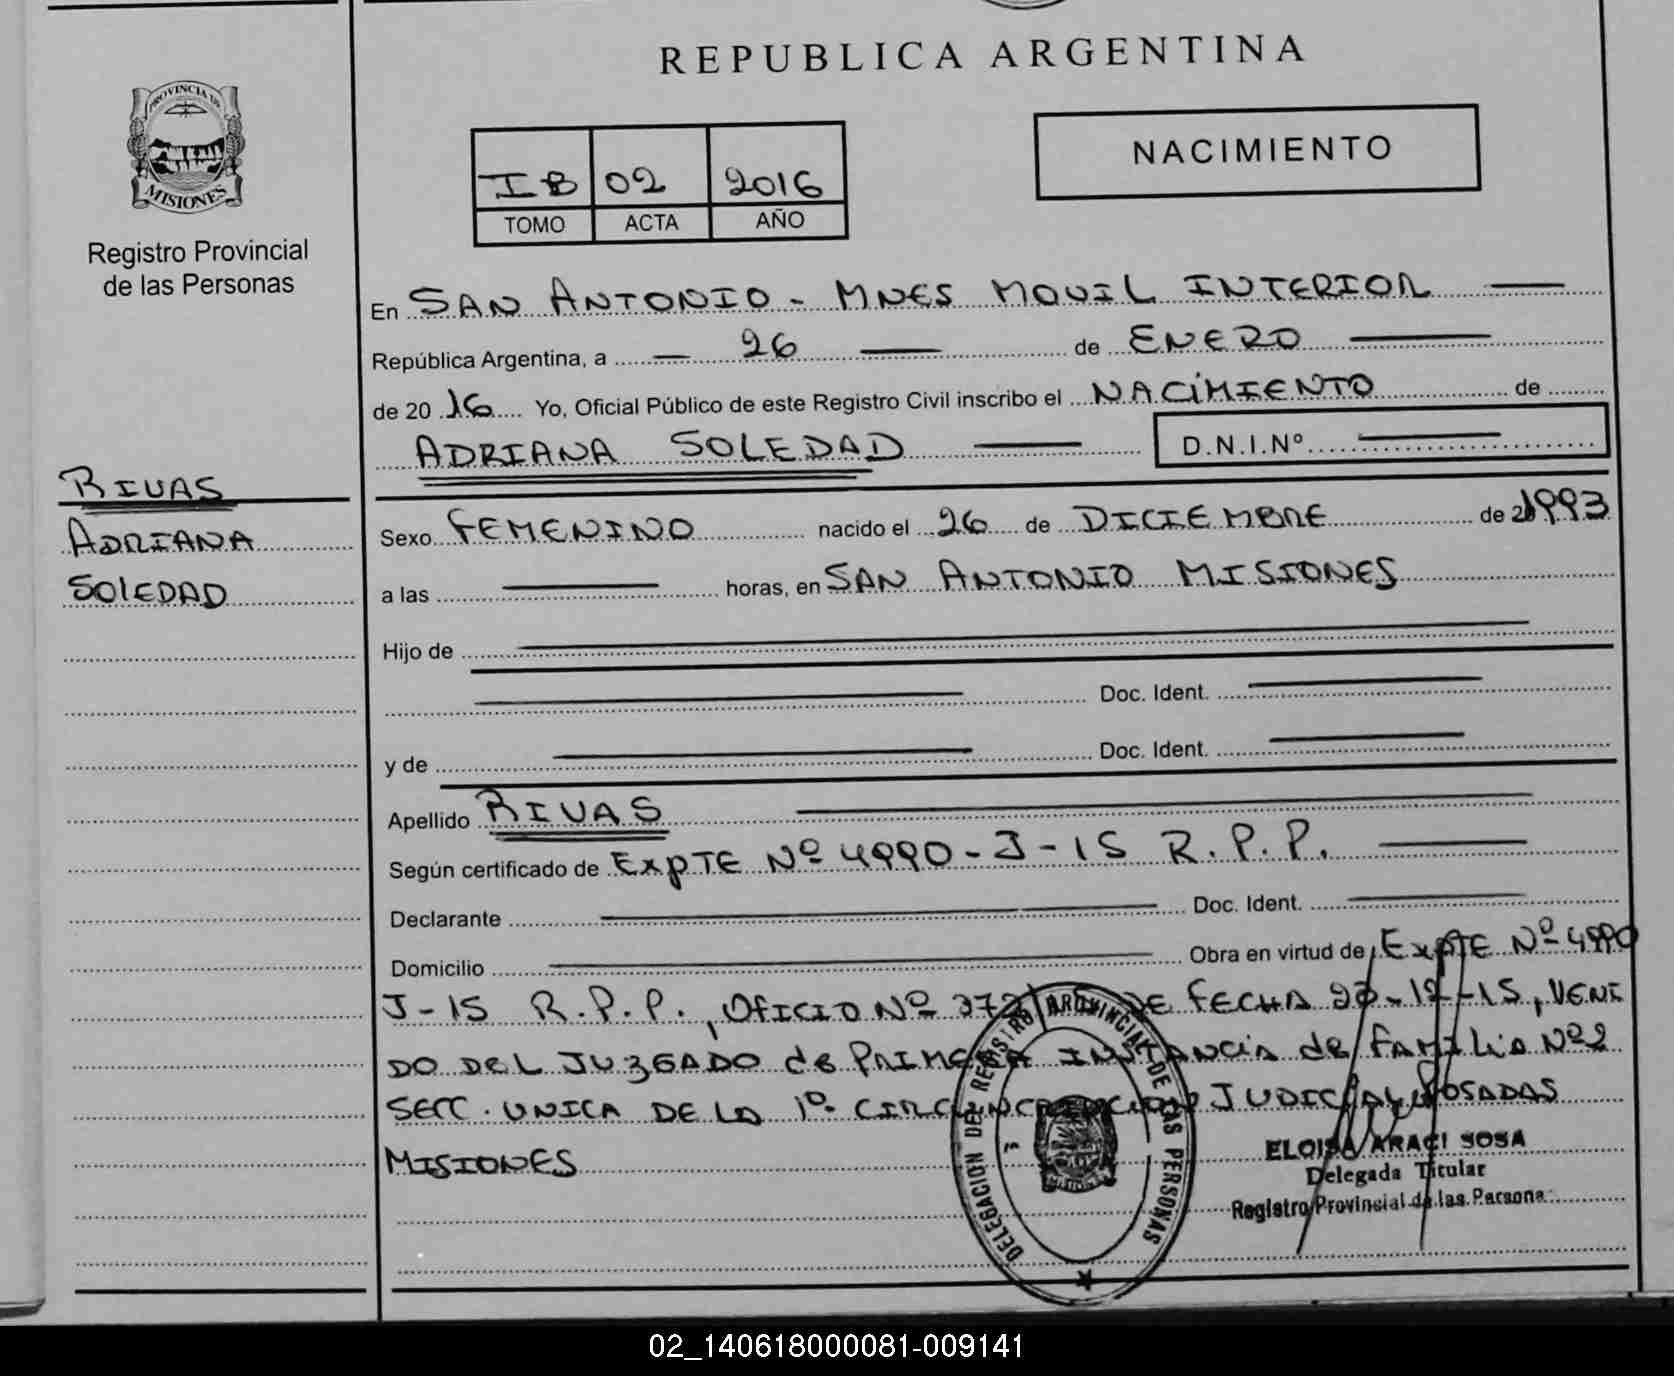 REPUBLICA ARGENTINA
PROVINCIA DE
MISIONES
Registro Provincial
de las Personas
NACIMIENTO
IB 02 2016
TOMO ACTA AÑO
En SAN ANTONIO - MNES MOVIL INTERIOR
República Argentina, a 26 de ENERO
de 20 16 Yo, Oficial Público de este Registro Civil inscribo el NACIMIENTO de
ADRIANA SOLEDAD D.N.I.Nº
RIVAS
ADRIANA
SOLEDAD
Sexo FEMENINO nacido el 26 de DICIEMBRE de 1993
a las horas, en SAN ANTONIO MISIONES
Hijo de
Doc. Ident.
y de Doc. Ident.
Apellido RIVAS
Según certificado de EXPTE Nº 4990-J-15 R.P.P.
Declarante Doc. Ident.
Domicilio Obra en virtud de EXPTE Nº 4990
J-15 R.P.P., OFICIO Nº DE FECHA -12-15, VENI
DO DEL JUZGADO de PRIMERA INSTANCIA de FAMILIA Nº2
SECC. UNICA DE LA 1º CIRCUNCRIPCION JUDICIAL POSADAS
MISIONES
DELEGACION DEL REGISTRO PROVINCIAL DE LAS PERSONAS
ELOISA ARACI SOSA
Delegada Titular
Registro Provincial de las Persona
02_140618000081-009141